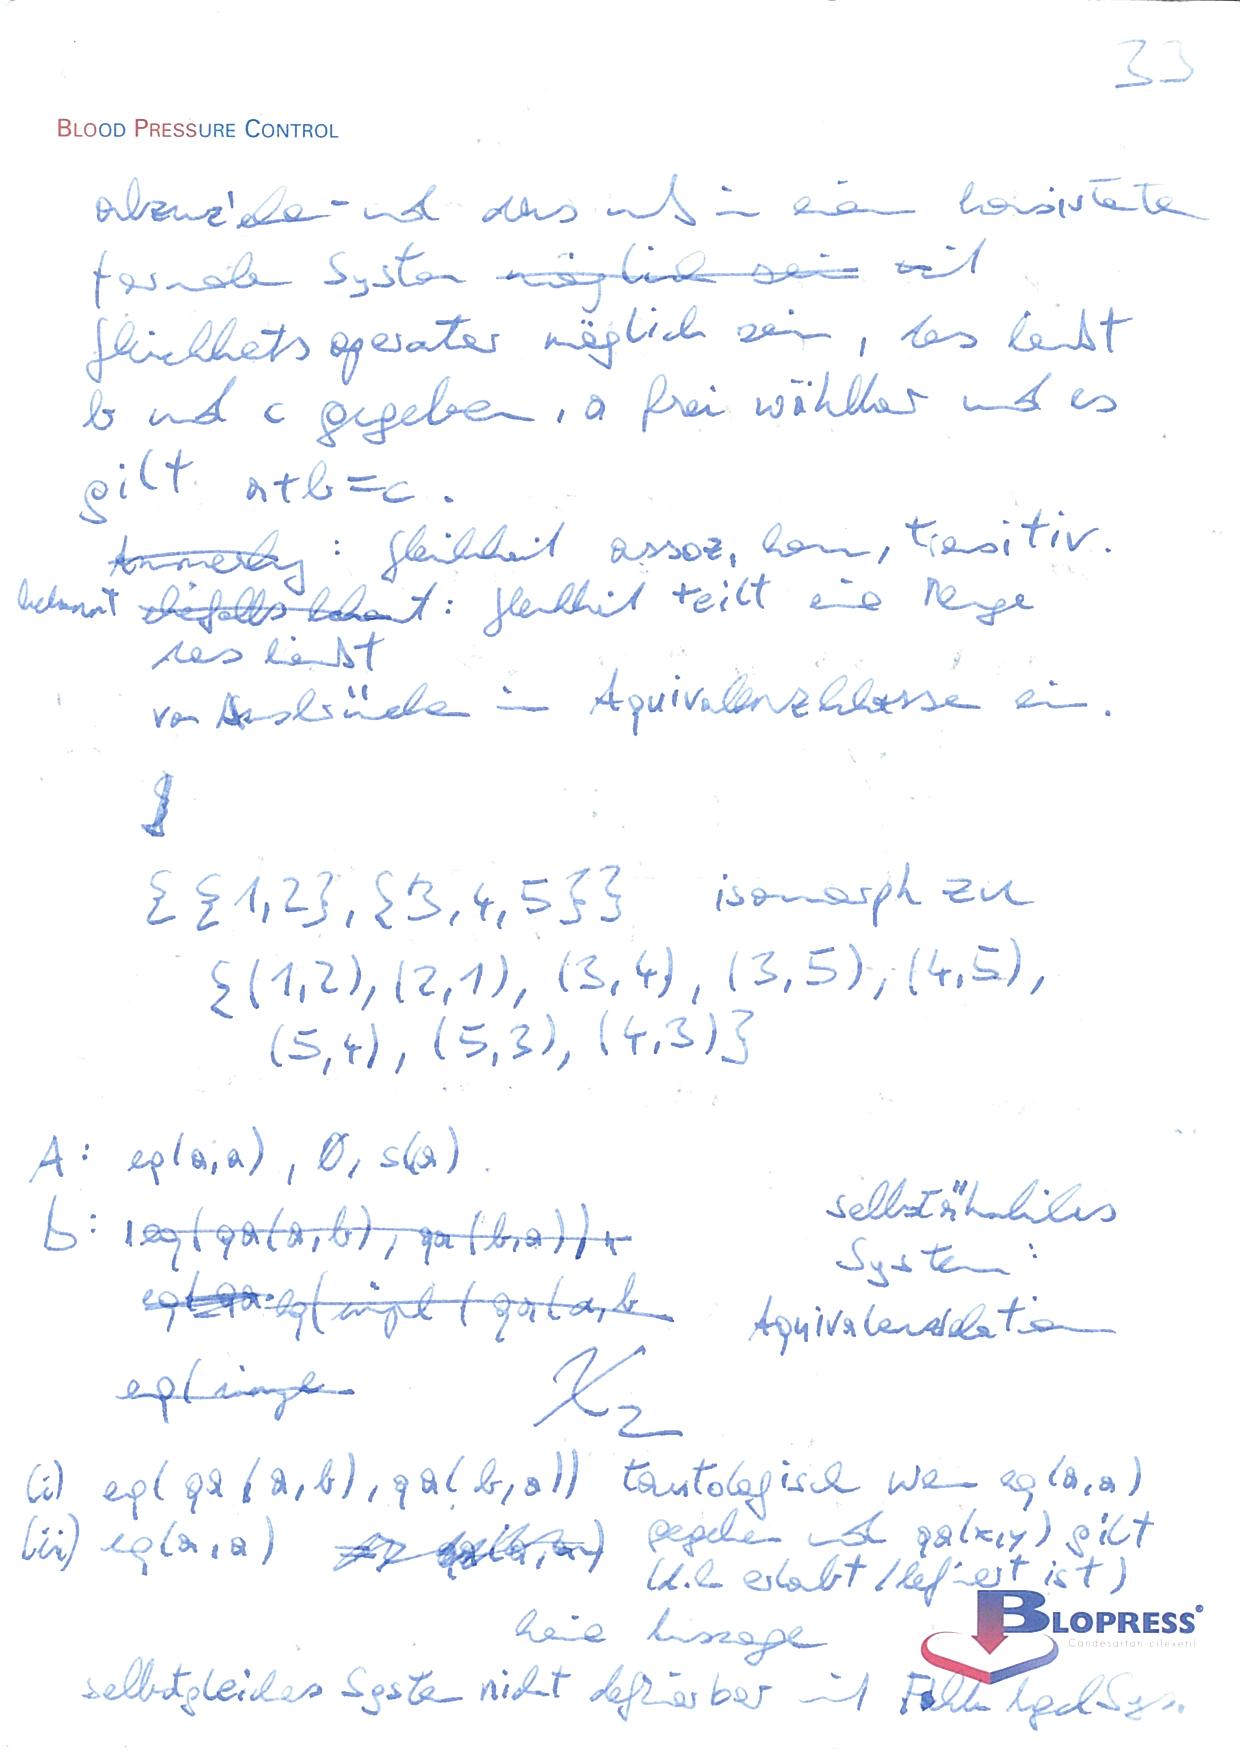 33
BLOOD PRESSURE CONTROL
und dass muß in einem konsistenten
formalen System möglich sein mit
Gleichheitsoperator möglich sein, das heißt
b und c gegeben, a frei wählbar und es
gilt a+b=c.
Anmerkung : Gleichheit assoz, kom, transitiv.
bekannt : Gleichheit teilt eine Menge
das heißt
von Ausdrücken in Äquivalenzklassen ein.
{{1,2},{3,4,5}} isomorph zu
{(1,2),(2,1), (3,4), (3,5), (4,5),
(5,4), (5,3), (4,3)}
A: eq(a,a), 0, s(a)
b: eq(qa(a,b), qa(b,a))
selbstähnliches
System:
eq(impl(qa(a,b
Äquivalenzrelation
eq(
X2
(i) eq(qa(a,b), qa(b,a)) tautologisch wenn eq(a,a)
(ii) eq(a,a) gegeben und qa(x,y) gilt
(d.h. erlaubt / definiert ist)
keine Aussage
BLOPRESS®
Candesartan cilexetil
selbstgleiches System nicht definierbar mit